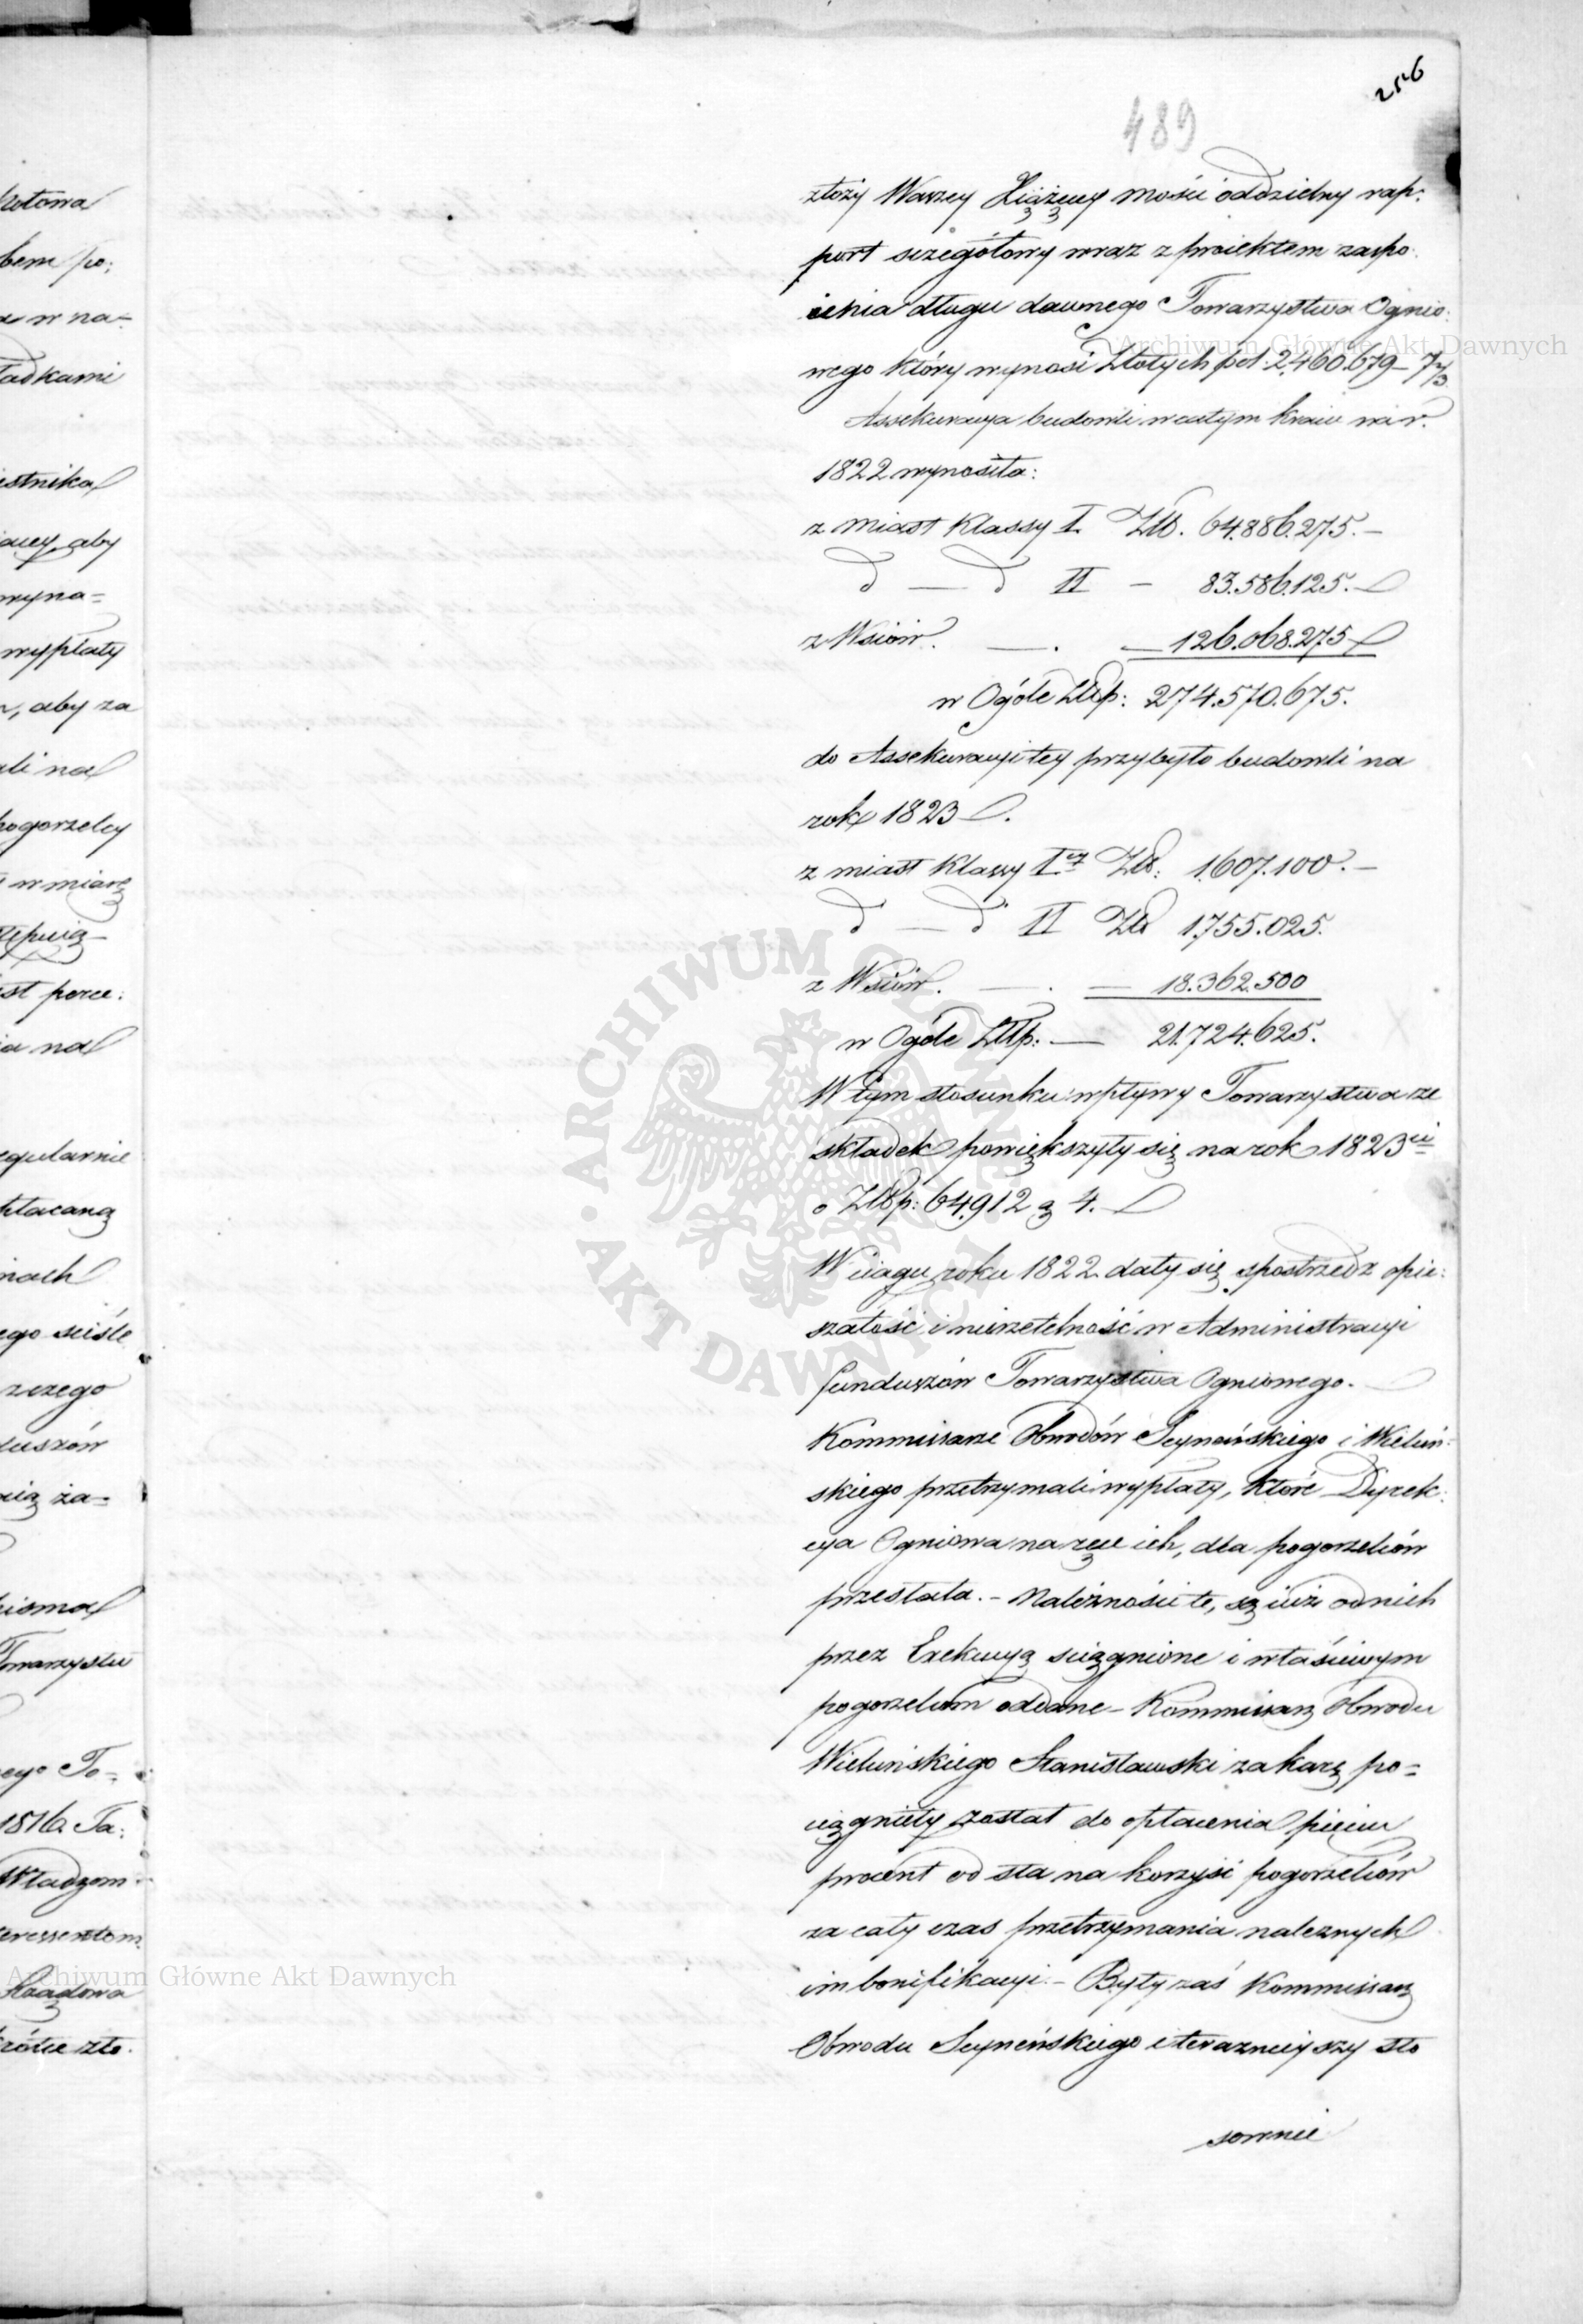 256
489
złoży Waszey Xiążęcey Mości oddzielny rap:
port szczegółowy wraz z proiektem zaspo:
ienia długu dawnego Towarzystwa Ognio:
wego który wynosi Złotych pol: 2,460.679 – 7
Assekuracya budowli w całym kraiu na r.
1822 wynosiła:
z Miast Klassy I. Złt. 64.886.275. –
d — d II – 83.586.125. –
z Wsiów. — . — 126.068.275
w Ogóle Złtp: 274.570.675.
do Assekuracyi tey przybyło budowli na
rok 1823.
z miast Klassy Iey Złt: 1.607.100. –
d — d II Zł 1.755.025.
z Wsiów. — . — 18.362.500
w Ogóle Złtp: — 21.724.625.
W tym stosunku wpływy Towarzystwa ze
składek powiększyły się na rok 1823ci
o Złtp: 64,912 g 4.
W ciągu roku 1822 dały się spostrzedz opie:
szałość i nierzetelność w Administracyi
funduszów Towarzystwa Ogniowego. –
Kommissarze Obwodów Seyneńskiego i Wieluń:
skiego przetrzymali wypłaty, które Dyrek:
cya Ogniowa na ręce ich, dla pogorzelców
przesłała. – Należności te, są iuż od nich
przez Exekucyą sciągnione i właściwym
pogorzelcom oddane – Kommissarz Obwodu
Wieluńskiego Stanisławski za karę po=
ciągnięty został do opłacenia pięciu
procent od sta na korzyść pogorzelców
za cały czas przetrzymania należnych
im bonifikacyi. – Były zaś Kommissarz
Obwodu Seyneńskiego i teraznieyszy sto
sownie
bem po:
w na=
adkami
aby
wypłaty
aby za
pogorzelcy
w miarę
regularnie
szczego
Towarzystw
1816. Ta:
Władzom
Rządowa
Archiwum Główne Akt Dawnych
Archiwum Główne Akt Dawnych
ARCHIWUM GŁÓWNE
AKT DAWNYCH